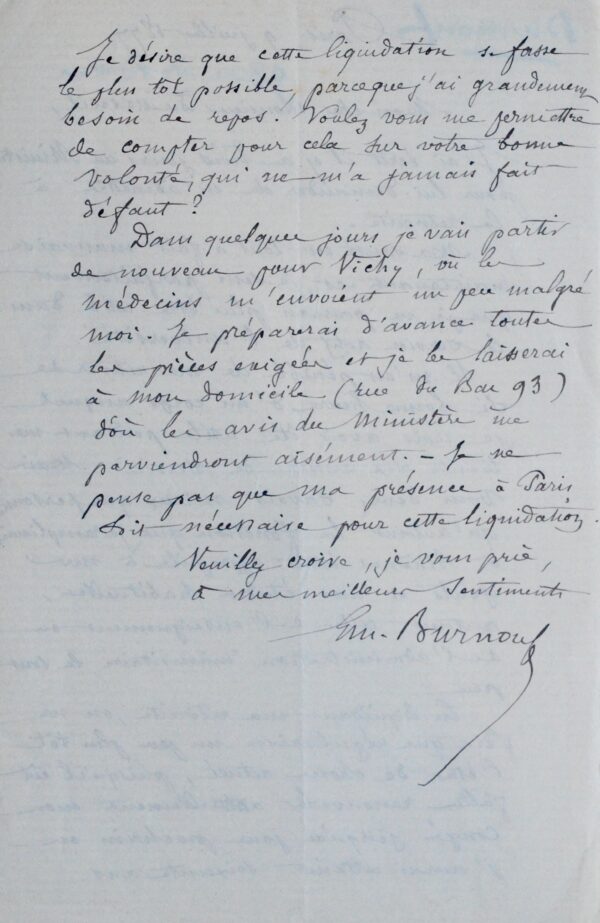 Je désire que cette liquidation se fasse
le plus tôt possible, parceque j'ai grandement
besoin de repos. Voulez vous me permettre
de compter pour cela sur votre bonne
volonté, qui ne m'a jamais fait
défaut ?
Dans quelques jours je vais partir
de nouveau pour Vichy, où les
médecins m'envoient un peu malgré
moi. Je préparerai d'avance toutes
les pièces exigées et je les laisserai
à mon domicile (rue du Bac 93)
d'où les avis du Ministère me
parviendront aisément. - Je ne
pense pas que ma présence à Paris
soit nécessaire pour cette liquidation.
Veuillez croire, je vous prie,
à mes meilleurs sentiments
Em. Burnouf